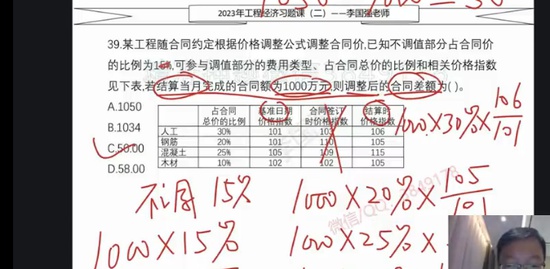 2023年工程经济习题课（二）——李国强老师
39.某工程随合同约定根据价格调整公式调整合同价,已知不调值部分占合同价
的比例为15%,可参与调值部分的费用类型、占合同总价的比例和相关价格指数
见下表,若结算当月完成的合同额为1000万元,则调整后的合同差额为( )。
A.1050
B.1034
C.50.00
D.58.00
占合同总价的比例 基准日期价格指数 合同签订时价格指数 结算时价格指数
人工 30% 101 103 106
钢筋 20% 101 110 105
混凝土 25% 105 109 115
木材 10% 102 102 105
1000×30%×106/101
不调 15%
1000×20%×105/101
1000×15%
1000×25%×